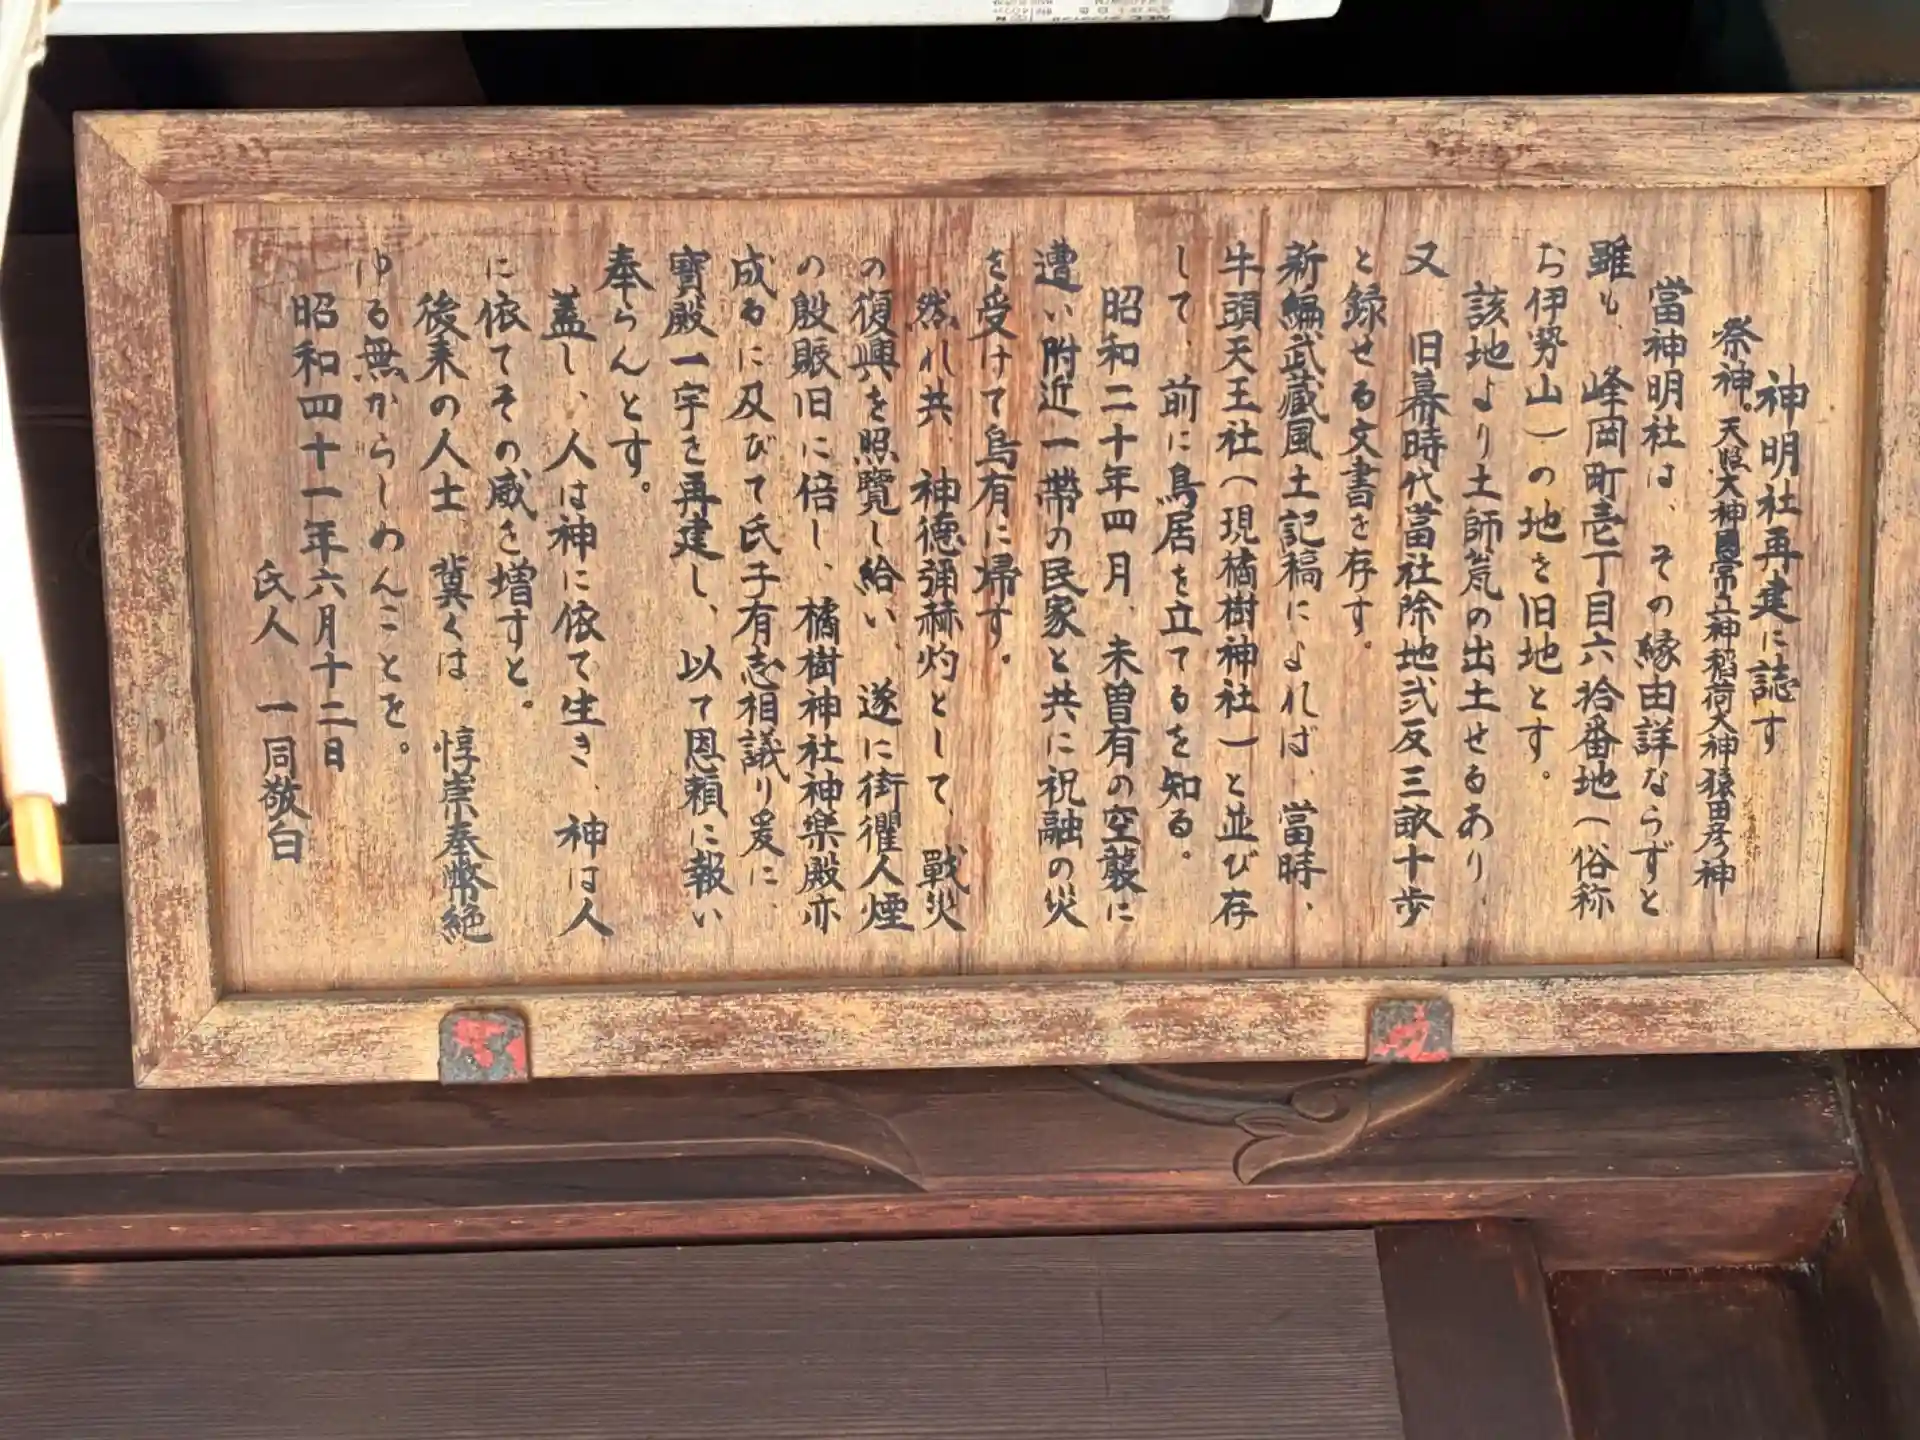 神明社再建に誌す
祭神。天照大神國常立神稲荷大神猿田彦神
當神明社は、その縁由詳ならずと
雖も、峰岡町壱丁目六拾番地（俗称
お伊勢山）の地を旧地とす。
該地より土師荒の出土せるあり、
又　旧幕時代當社除地弐反三畝十歩
と録せる文書を存す。
新編武蔵風土記稿によれば、當時、
牛頭天王社（現橘樹神社）と並び存
して、前に鳥居を立てるを知る。
昭和二十年四月、未曽有の空襲に
遭い附近一帯の民家と共に祝融の災
を受けて烏有に帰す。
然れ共、神徳彌赫灼として、戰災
の復興を照覽し給い、遂に街衢人煙
の殷賑旧に倍し、橘樹神社神樂殿亦
成るに及びて氏子有志相議り爰に、
寶殿一宇を再建し、以て恩頼に報い
奉らんとす。
蓋しい人は神に依て生き、神は人
に依てその威を増すと。
後来の人士　冀くは　惇崇奉幣絶
ゆる無からしめんことを。
昭和四十一年六月十二日
氏人　一同敬白